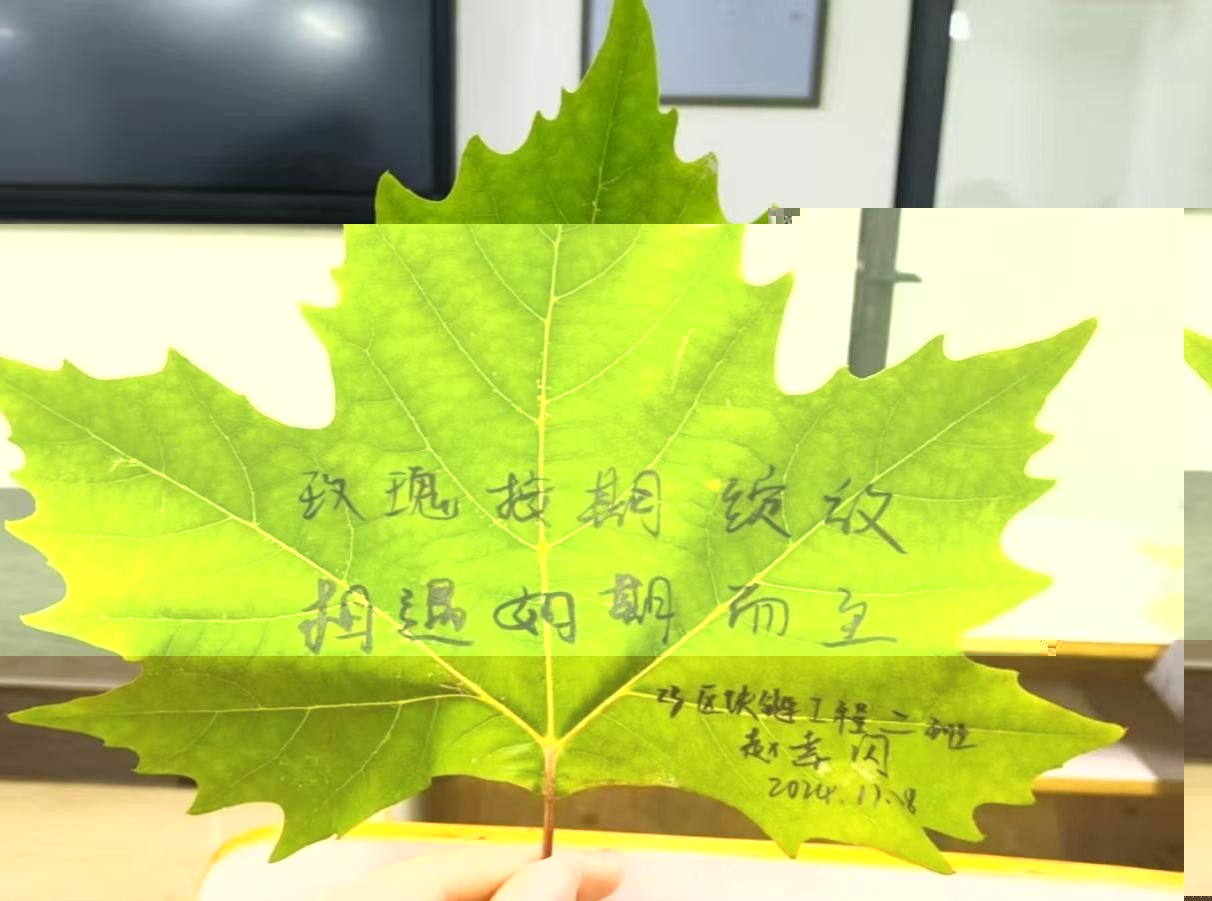 玫瑰按期绽放
相遇如期而至
23区块链工程二班
赵幸闪
2024.11.8